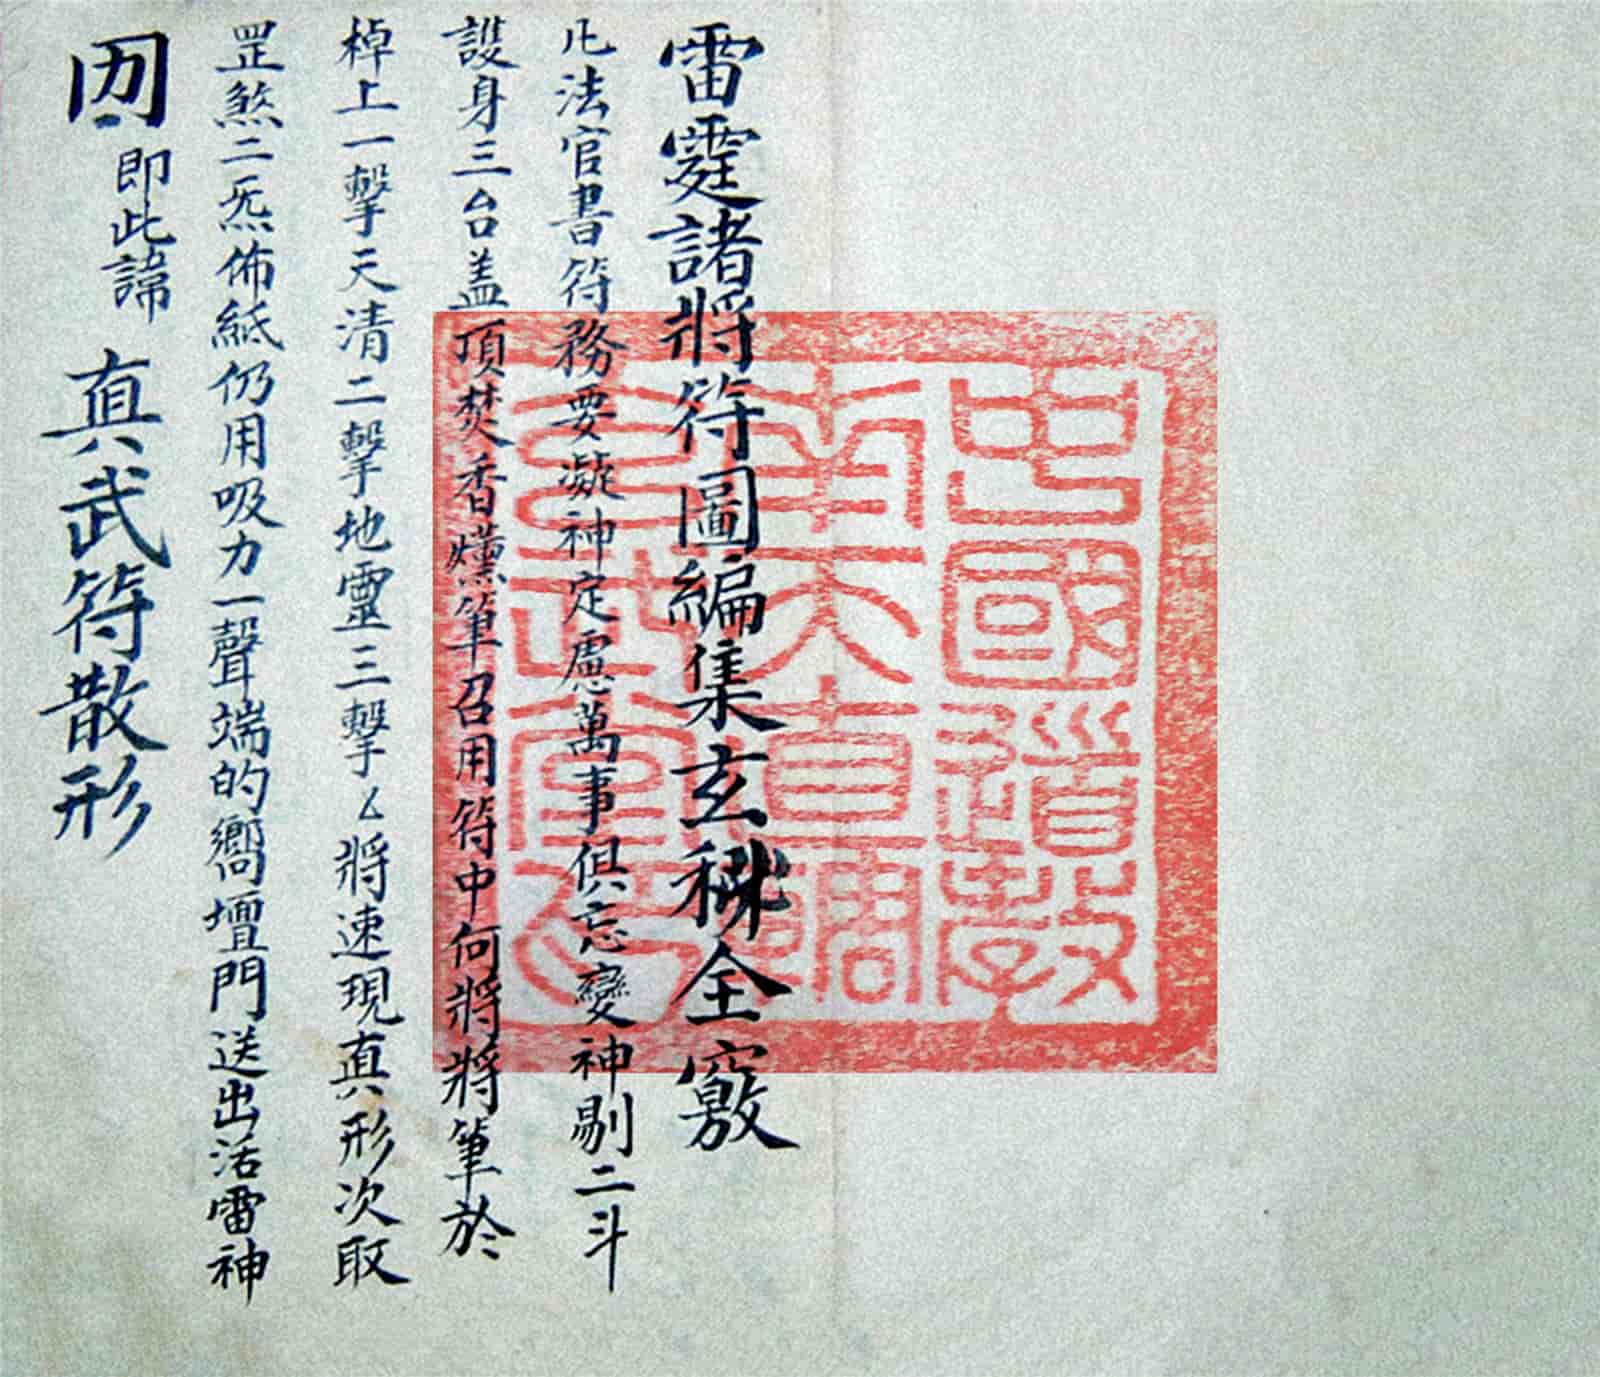 雷霆諸將符圖編集玄秘全竅
凡法官書符務要凝神定慮萬事俱忘變神剔二斗
護身三台盖頂焚香爐筆召用符中何將將筆於
棹上一擊天清二擊地靈三擊厶將速現真形次取
罡煞二炁佈紙仍用吸力一聲端的嚮壇門送出活雷神
囦即此諱 真武符散形
中國道教
南大真閣
玄武堂